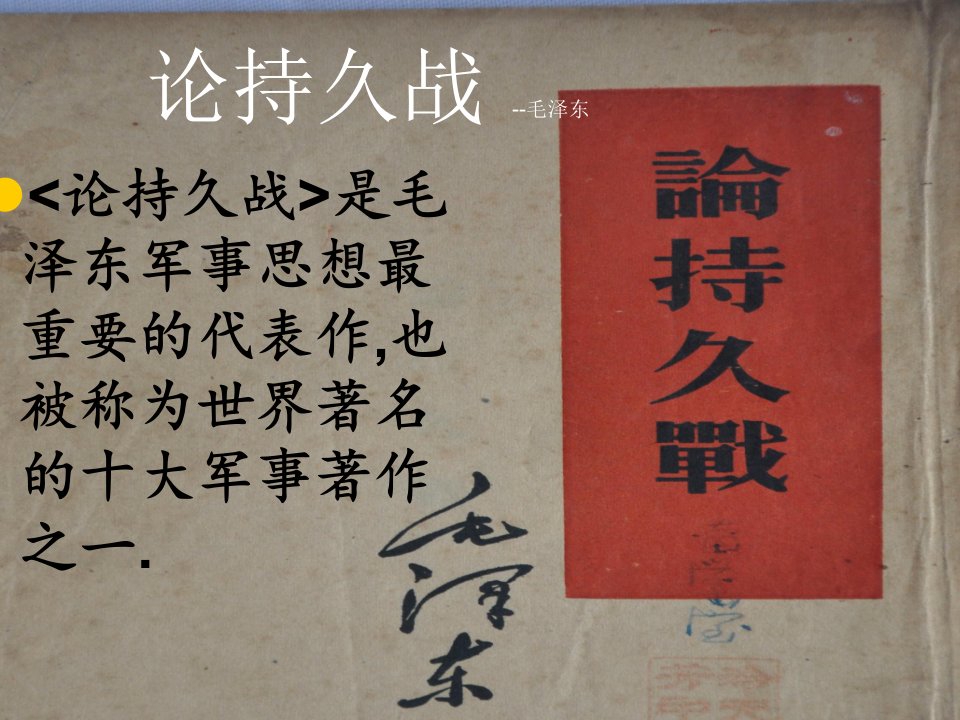 论持久战 --毛泽东
<论持久战>是毛
泽东军事思想最
重要的代表作,也
被称为世界著名
的十大军事著作
之一.
論持久戰
毛澤东